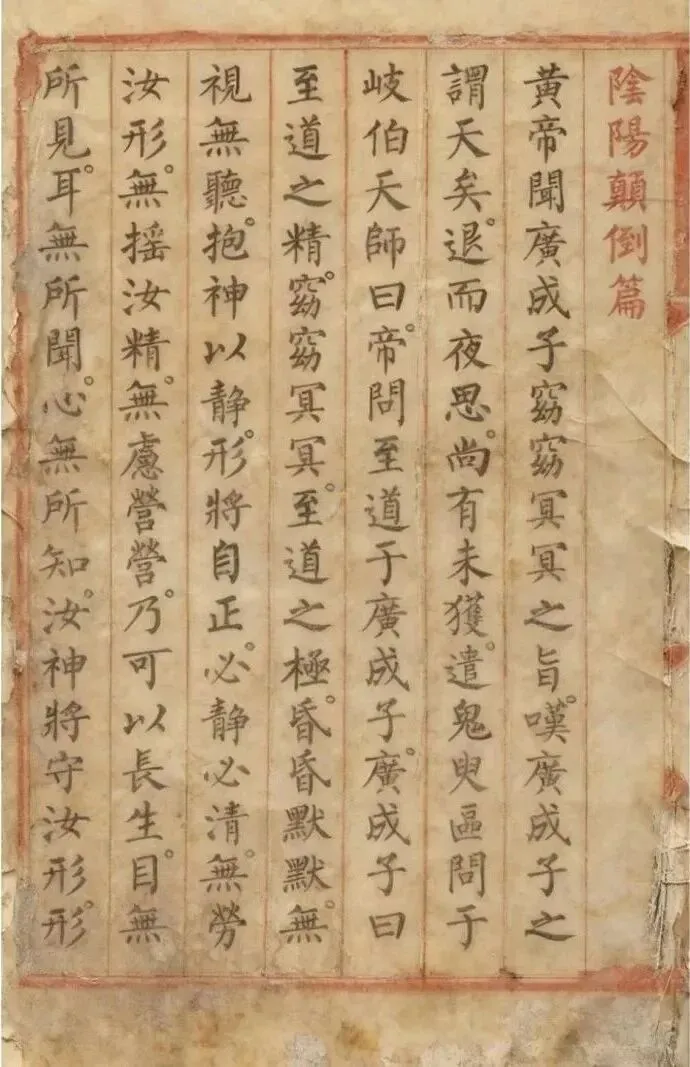 陰陽顛倒篇
黃帝聞廣成子窈窈冥冥之旨。嘆廣成子之
謂天矣。退而夜思。尚有未獲。遣鬼臾區問于
岐伯天師曰。帝問至道于廣成子。廣成子曰
至道之精。窈窈冥冥。至道之極。昏昏默默。無
視無聽。抱神以静。形將自正。必静必清。無勞
汝形。無揺汝精。無慮營營。乃可以長生。目無
所見。耳無所聞。心無所知。汝神將守汝形。形